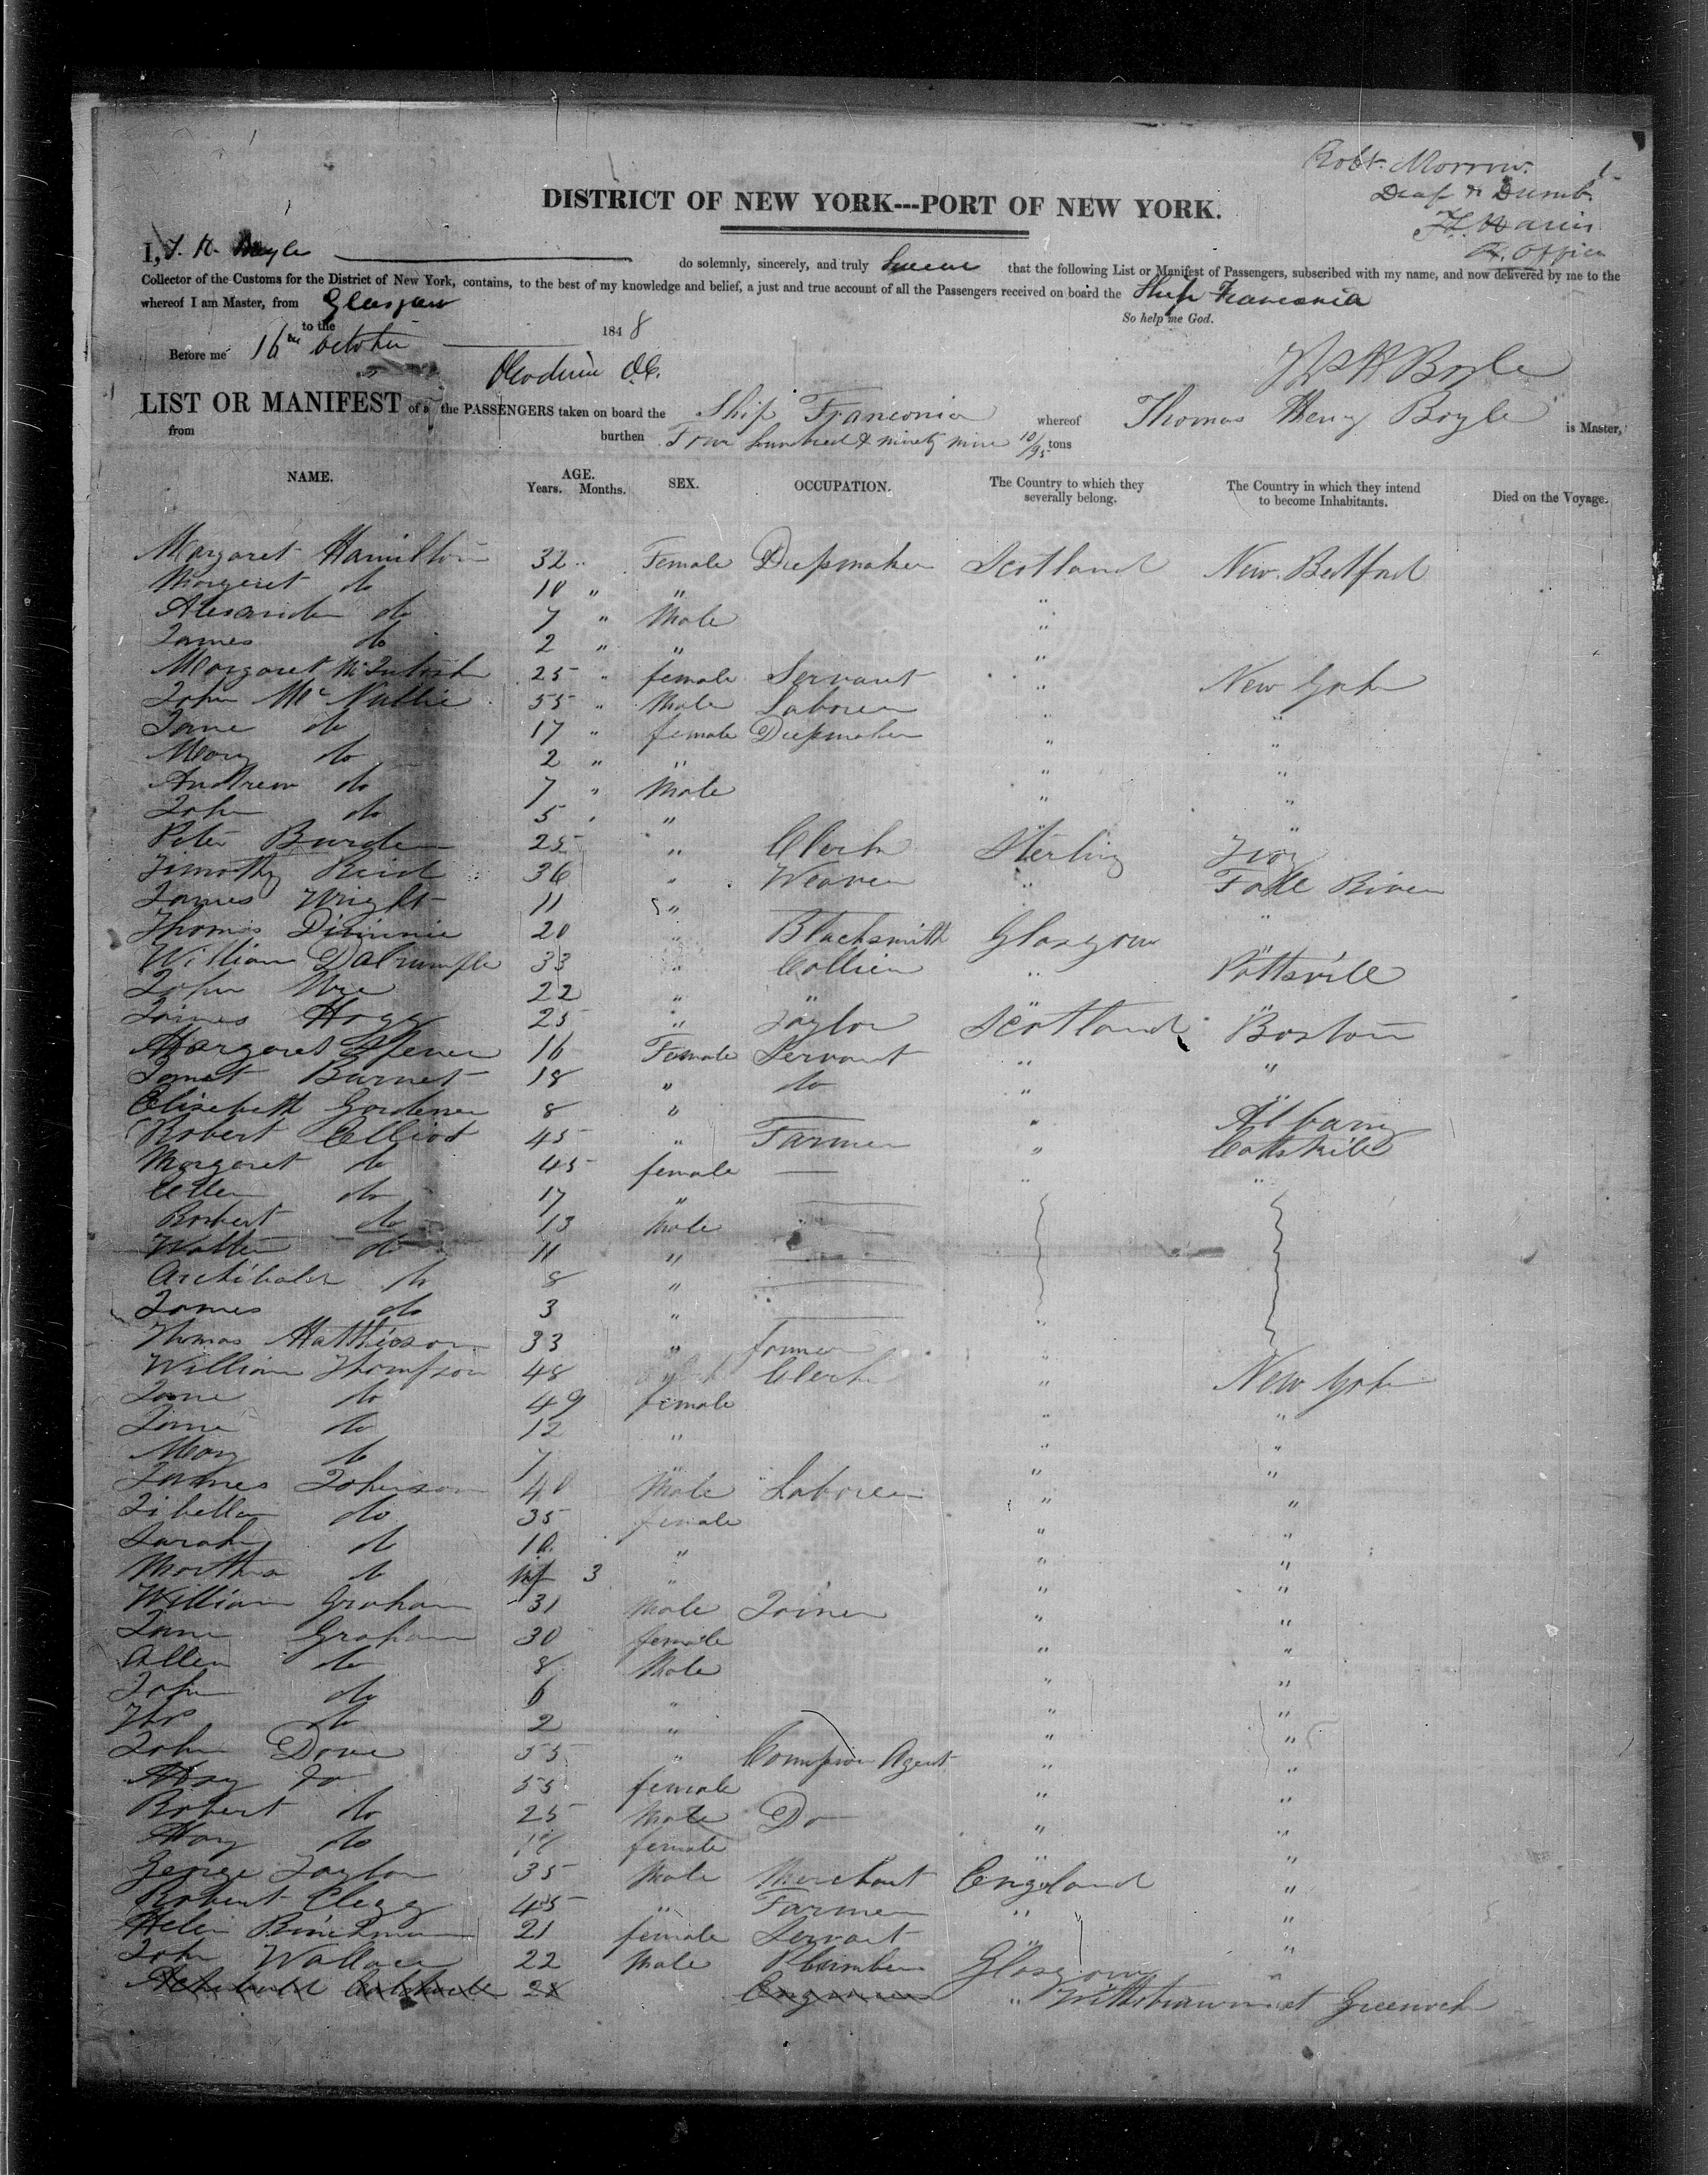 Robt. Morrow.
Deaf & Dumb.
Office
DISTRICT OF NEW YORK---PORT OF NEW YORK.
I, T. H. Boyle do solemnly, sincerely, and truly Swear that the following List or Manifest of Passengers, subscribed with my name, and now delivered by me to the
Collector of the Customs for the District of New York, contains, to the best of my knowledge and belief, a just and true account of all the Passengers received on board the Ship Franconia
whereof I am Master, from Glasgow
to the So help me God.
Before me 16th October 1848
Thos H Boyle
LIST OR MANIFEST of all the PASSENGERS taken on board the Ship Franconia whereof Thomas Henry Boyle is Master,
from burthen Four hundred & ninety nine 10/95 tons
NAME. AGE. Years. Months. SEX. OCCUPATION. The Country to which they severally belong. The Country in which they intend to become Inhabitants. Died on the Voyage.
Margaret Hamilton 32 " Female Drepmaker Scotland New Bedford
Margeret do 10 " " "
Alexander do 7 " Male "
James do 2 " " "
Margaret McIntosh 25 " female Servant " New York
John McNullie 55 " Male Laborer " "
Jane do 17 " female Drepmaker " "
Mary do 2 " " " "
Andrew do 7 " Male " "
John do 5 " " " "
Peter Burden 25 " Clerk Sterling Troy
Timothy Reid 36 " Weaver " Fall River
James Wright 11 " " "
Thomas 20 " Blacksmith Glasgow "
William Dalrumple 33 " Collier " Pottsvill
John 22 " " " "
James Hogg 25 " Taylor Scotland Boston
Margaret 16 Female Servant " "
Janet Burnet 18 " do "
Elizebeth Gardener 8 " " Albany
Robert Elliot 45 " Farmer " Cattskill
Margaret do 45 female — " "
Ellen do 17 "
Robert do 13 Male
Walter do 11 "
Archibald do 8 "
James do 3 "
Thomas Matthieson 33 " farmer "
William Thompson 48 " Clerk " New York
Jane do 49 female " "
Jane do 12 " " "
Mary do 7 " " "
James Johnson 40 Male Laborer " "
Isbella do 35 female " "
Sarah do 10 " " "
Martha do Inf 3 " " "
William Graham 31 Male Joiner " "
Jane Graham 30 female " "
Allen do 8 Male " "
John do 6 " " "
Thos do 2 " " "
John Dove 55 " Agent " "
Mary Do 55 female " "
Robert do 25 Male Do " "
May do female " "
George Taylor 35 Male Merchant England "
Robert Clegg 45 " Farmer " "
Helen 21 female Servant " "
John Wallace 22 Male Plumber Glasgow "
Archibald 21 Engineer " Withdrawn at Greenock